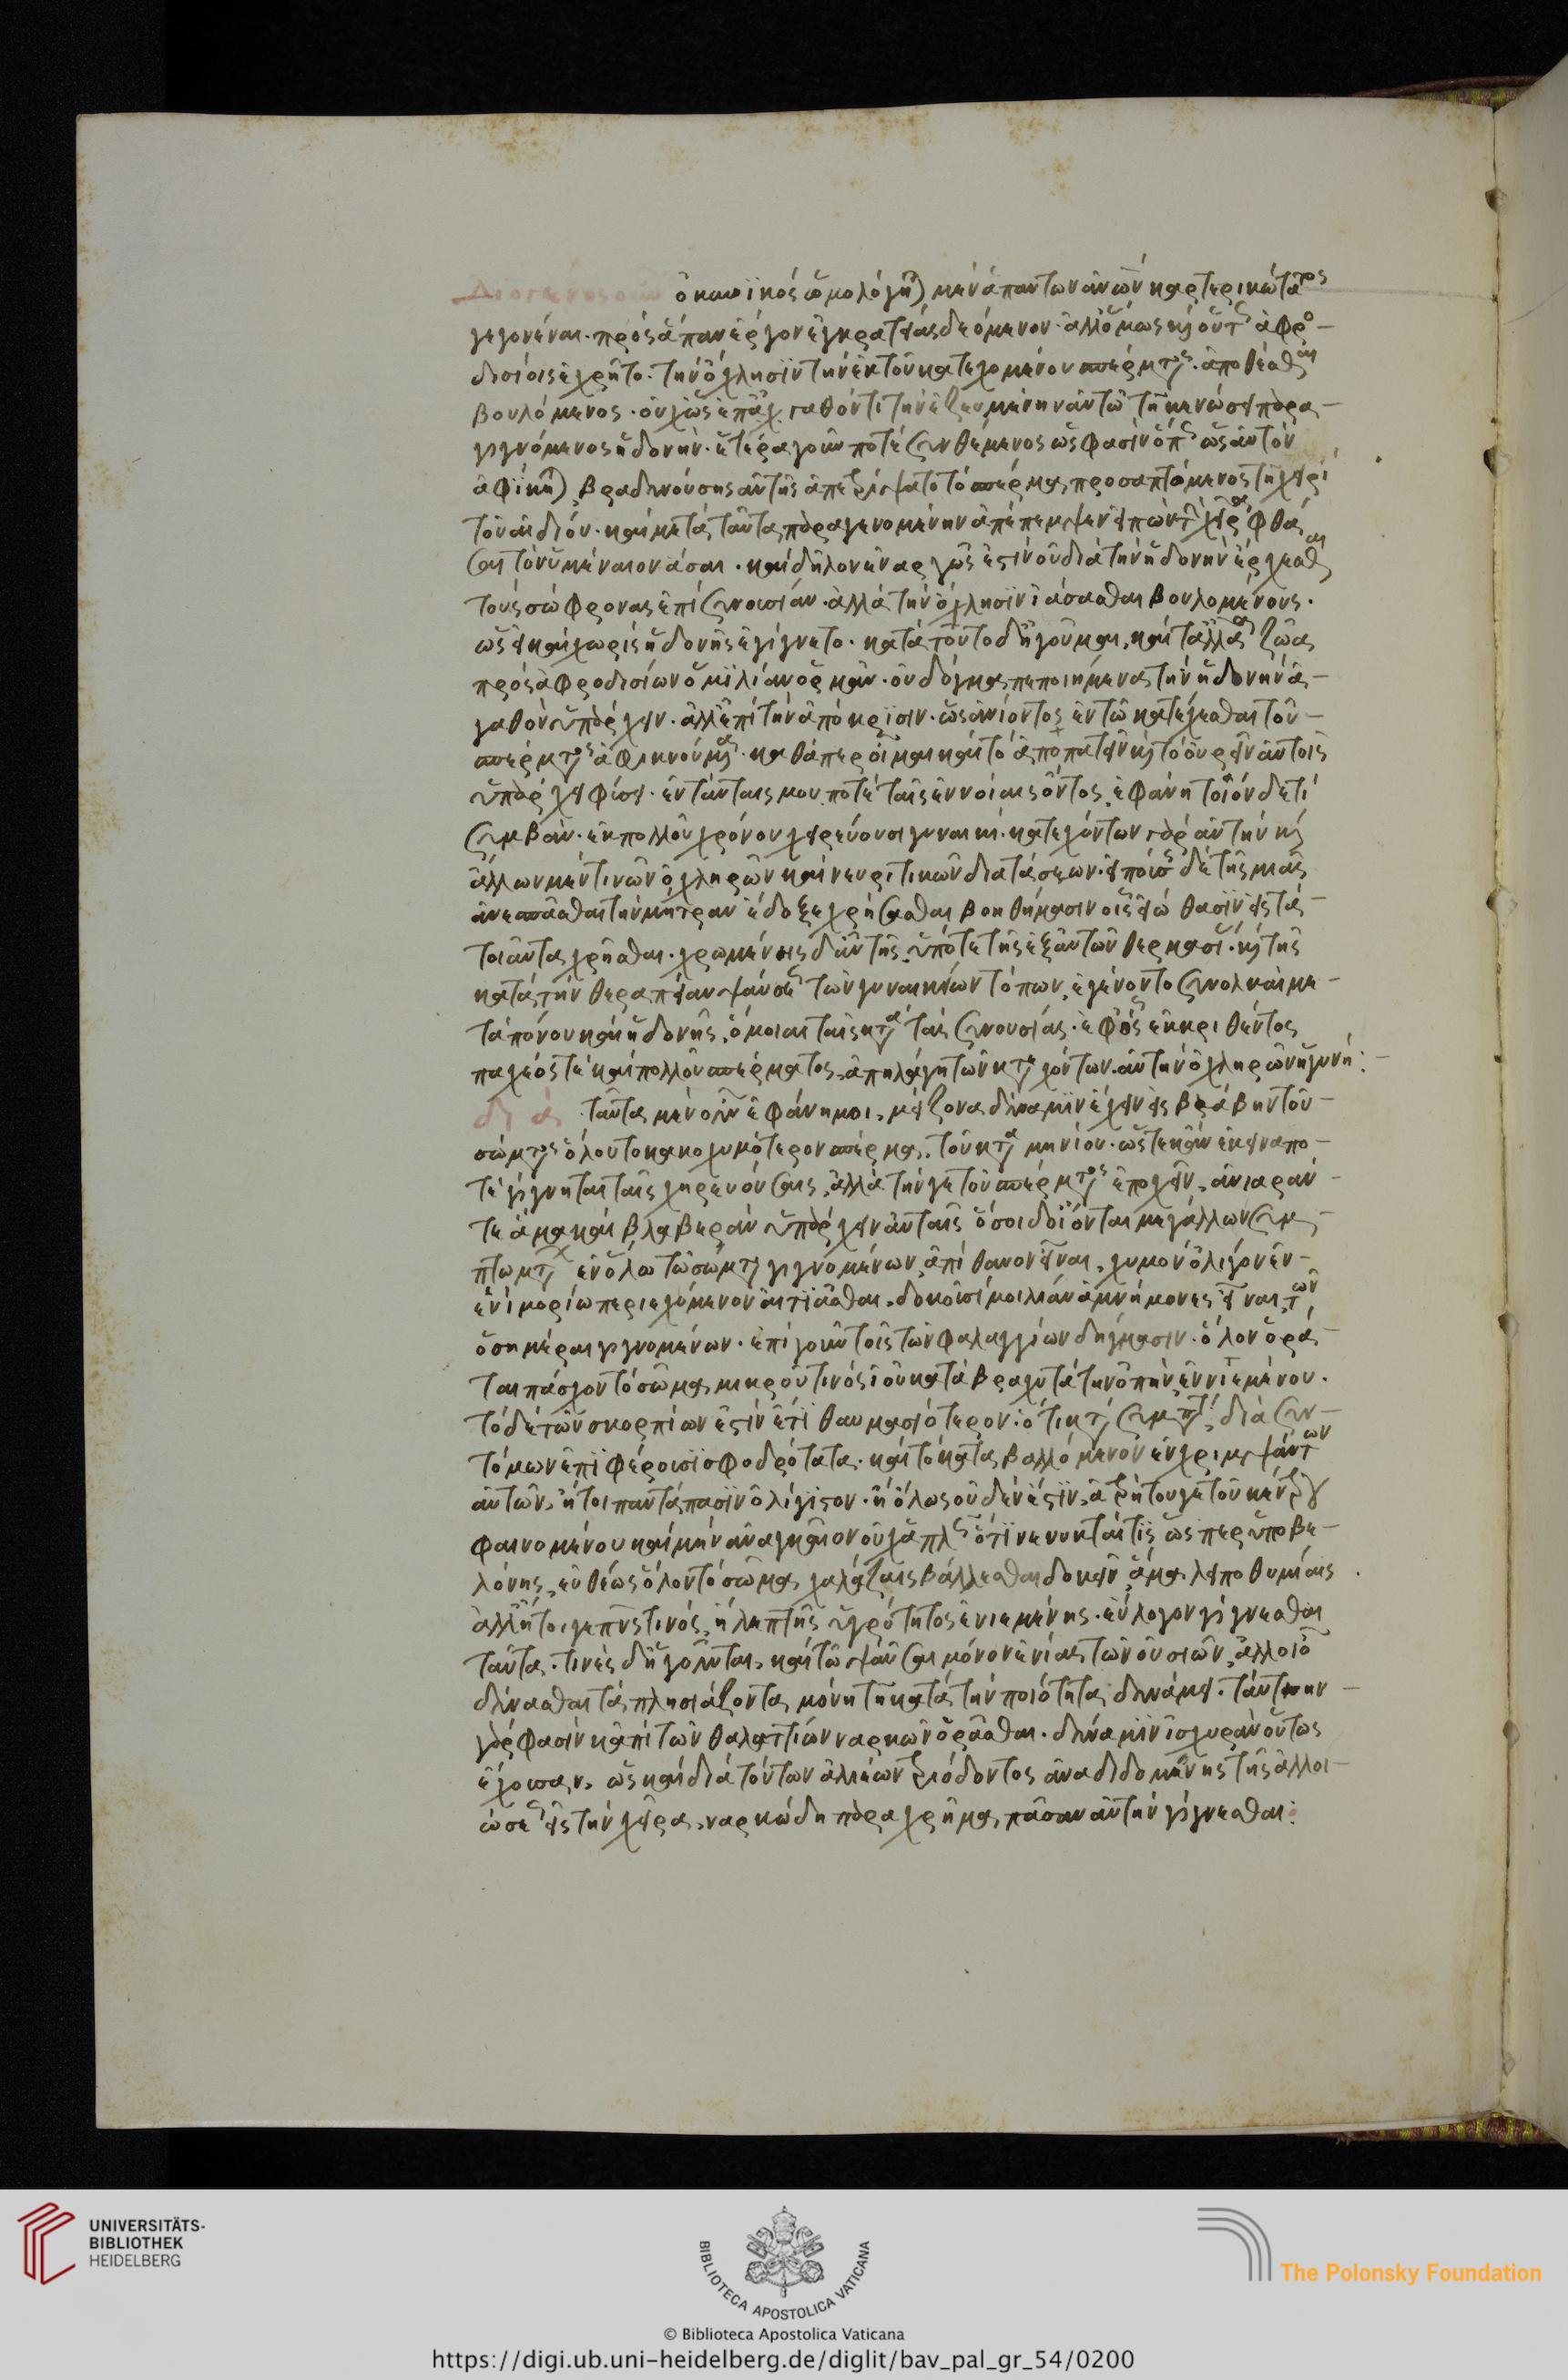 Διογένης οὖν ὁ κυνϊκός ὡμολόγητ(αι) μὲν ἁπάντων ἀν(θρώπ)ων καρτερικώτατος
γεγονέναι· πρὸς ἅπαν ἔργον ἐγκρατείας δεόμενον· ἀλλ' ὅμως κ(αὶ) οὗτ(ος) ἀφρο-
δισίοις ἐχρῆτο· τὴν ὄχλησϊν τὴν ἐκ τοῦ κατεχομένου σπέρματος· ἀποθέσθαι
βουλόμενος· οὐχ ὡς ἐπ' ἀγαθόν τι τὴν ἐζευγμένην αὐτῶ τῆ κενώσει παρα-
γιγνόμενος ἡδονήν· ἑτέρα γοῦν ποτὲ συνθέμενος ὥς φασὶν ὅπ(ως) ὡς αὐτὸν
ἀφίκητ(αι) βραδυνούσης αὐτῆς ἀπετρίψατο τὸ σπέρμα, προσαπτόμενος τῆ χειρὶ
τοῦ αἰδίου· καὶ μετὰ ταῦτα παραγενομένην ἀπέπεμψεν εἰπὼν τ(ὴν) χεῖρα φθά
σαι τὸν ὑμέναιον ἆσαι· καὶ δῆλον ἐναργῶς ἐστὶν οὐ διὰ τὴν ἡδονὴν ἔρχεσθαι
τοὺς σώφρονας ἐπὶ συνουσίαν· ἀλλὰ τὴν ὄχλησϊν ἰάσασθαι βουλομένους·
ὡς εἰ καὶ χωρὶς ἡδονῆς ἐγίγνετο· κατὰ τοῦτο δὴ γοῦμαι, καὶ τἄλλα ζῶα
πρὸς ἀφροδισίων ὁμϊλίαν ὁρμᾶν· οὐ δόγμα πεποιημένα τὴν ἡδονὴν ἀ-
γαθὸν ὑπάρχειν· ἀλλ' ἐπὶ τὴν ἀπόκρϊσιν· ὡς ἀνιῶντος ἐν τῶ κατέχεσθαι τοῦ-
σπέρματος ἀφικνοῦμαι· καθάπερ οἶμαι καὶ τὸ ἀποπατεῖν κ(αὶ) τὸ οὐρεῖν αὐτοῖς
ὑπάρχει φύσει· ἐν ταύταις μου ποτὲ ταῖς ἐννοίαις ὄντος, ἐφάνη τοιόνδε τι
συμβάν· ἐκ πολλοῦ χρόνου χηρευούση γυναικί· κατεχόντων γὰρ αὐτὴν κ(αὶ)
ἄλλων μέν τινῶν ὀχληρῶν καὶ νευρϊτικῶν διατάσεων· εἰπούσ(ης) δὲ τῆς μαίας
ἀνεσπᾶσθαι τὴν μήτραν ἔδοξε χρήσασθαι βοηθήμασιν οἷς εἰώθασϊν εἰς τὰ-
τοιαῦτα χρῆσθαι· χρωμένοις δ' αὐτῆς ὑπό τε τῆς ἐξ αὐτῶν θερμασί(ας) κ(αὶ) τῆς
κατὰ τὴν θεραπείαν ψαύσεως τῶν γυναικείων τόπων, ἐγένοντο συνολκαὶ με-
τὰ πόνου καὶ ἡδονῆς, ὅμοιαι ταῖς κατὰ τὰς συνουσίας· ἐφ' οἷς ἐκκριθέντος
παχέος τε καὶ πολλοῦ σπέρματος, ἀπηλάγη τῶν κατεχόντων αὐτὴν ὀχληρῶν ἡ γυνή:-
διὰ ταῦτα μὲν οὖν ἐφάνη μοι, μείζονα δύναμϊν ἔχειν εἰς βλάβην τοῦ-
σώματος ὅλου τὸ κακοχυμότερον σπέρμα, τοῦ καταμηνίου· ὥστε κἂν ἐκεῖνα πο-
τε γίγνηται ταῖς χηρευούσαις, ἀλλὰ τήν γε τοῦ σπέρματος ἐποχὴν, ἀνιαρὰν-
τε ἅμα καὶ βλαβερὰν ὑπάρχειν αὐταῖς ὅσοι δ' οἴονται μεγάλων συμ-
πτωμάτων ἐν ὅλω τῶ σώματι γιγνομένων, ἀπίθανον εἶναι, χυμὸν ὀλίγον ἐν-
ἑνὶ μορίω περιεχόμενον αἰτιᾶσθαι, δοκοῦσί μοι λίαν ἀμνήμονες εἶναι, τῶν
ὁσημέραι γιγνομένων· ἐπὶ γοῦν τοῖς τῶν φαλαγγίων δήγμασιν· ὅλον ὁρᾶ-
ται πάσχον τὸ σῶμα, μικροῦ τινὸς ἰοῦ κατὰ βραχυτάτην ὀπὴν ἐνϊεμένου·
τὸ δὲ τῶν σκορπίων ἐστὶν ἔτϊ θαυμασιότερον: ὅτι κατὰ συμπτ διὰ συν-
τόμων ἐπϊφέρουσϊ σφοδρότατα· καὶ τὸ καταβαλλόμενον ἐγχριμψάντων
αὐτῶν, ἤτοι παντάπασϊν ὀλίγϊστον· ἢ ὅλως οὐδὲν ἐστϊν, ἀτρήτου γε τοῦ κέντρου
φαινομένου καὶ μὴν ἀναγκαῖον οὐχ ἁπλῶς ὅτϊ νένυκταί τϊς ὥσπερ ὑπὸ βε-
λόνης, εὐθέως ὅλον τὸ σῶμα, χαλάζαις βάλλεσθαι δοκεῖν, ἅμα λειποθυμίαις
ἀλλ' ἤτοι γε πν(εύματο)ς τινός, ἢ λεπτῆς ὑγρότητος ἐνιεμένης· εὔλογον γίγνεσθαι
ταῦτα· τινὲς δὴ γοῦνται, καὶ τῶ ψαῦσαι μόνον ἐνίας τῶν οὐσιῶν, ἀλλοιοῦ(ν)
δύνασθαι τὰ πλησιάζοντα, μόνη τῆ κατὰ τὴν ποιότητα δυνάμει· ταύτην-
γάρ φασϊν κἀπὶ τῶν θαλαττίων ναρκῶν ὁρᾶσθαι· δύναμϊν ἰσχυρὰν οὕτως
ἔχουσαν, ὡς καὶ διὰ τούτων ἁλιέων τριόδοντος ἀναδιδομένης τῆς ἀλλοι-
ώσεως εἰς τὴν χεῖρα, ναρκώδη παραχρῆμα, πᾶσαν αὐτὴν γίγνεσθαι:
UNIVERSITÄTS-
BIBLIOTHEK
HEIDELBERG
BIBLIOTECA APOSTOLICA VATICANA
The Polonsky Foundation
© Biblioteca Apostolica Vaticana
https://digi.ub.uni-heidelberg.de/diglit/bav_pal_gr_54/0200